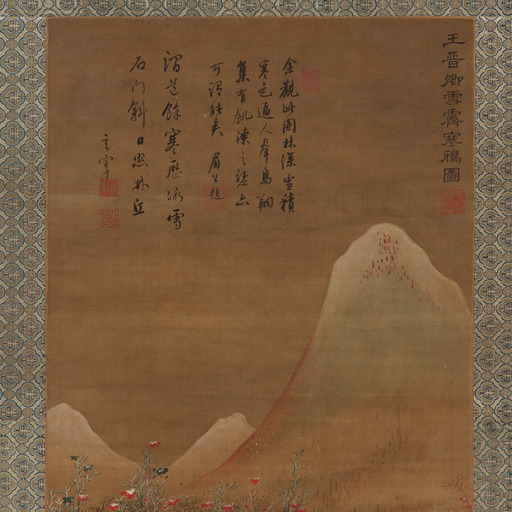 王晉卿雪霽寒鴉圖
余觀此圖林深雪積
寒色逼人羣鳥翔
集有飢凍之態亦
可謂能矣 眉公題
溪邊餘寒歷冰雪
石門斜日照林丘
玄宰